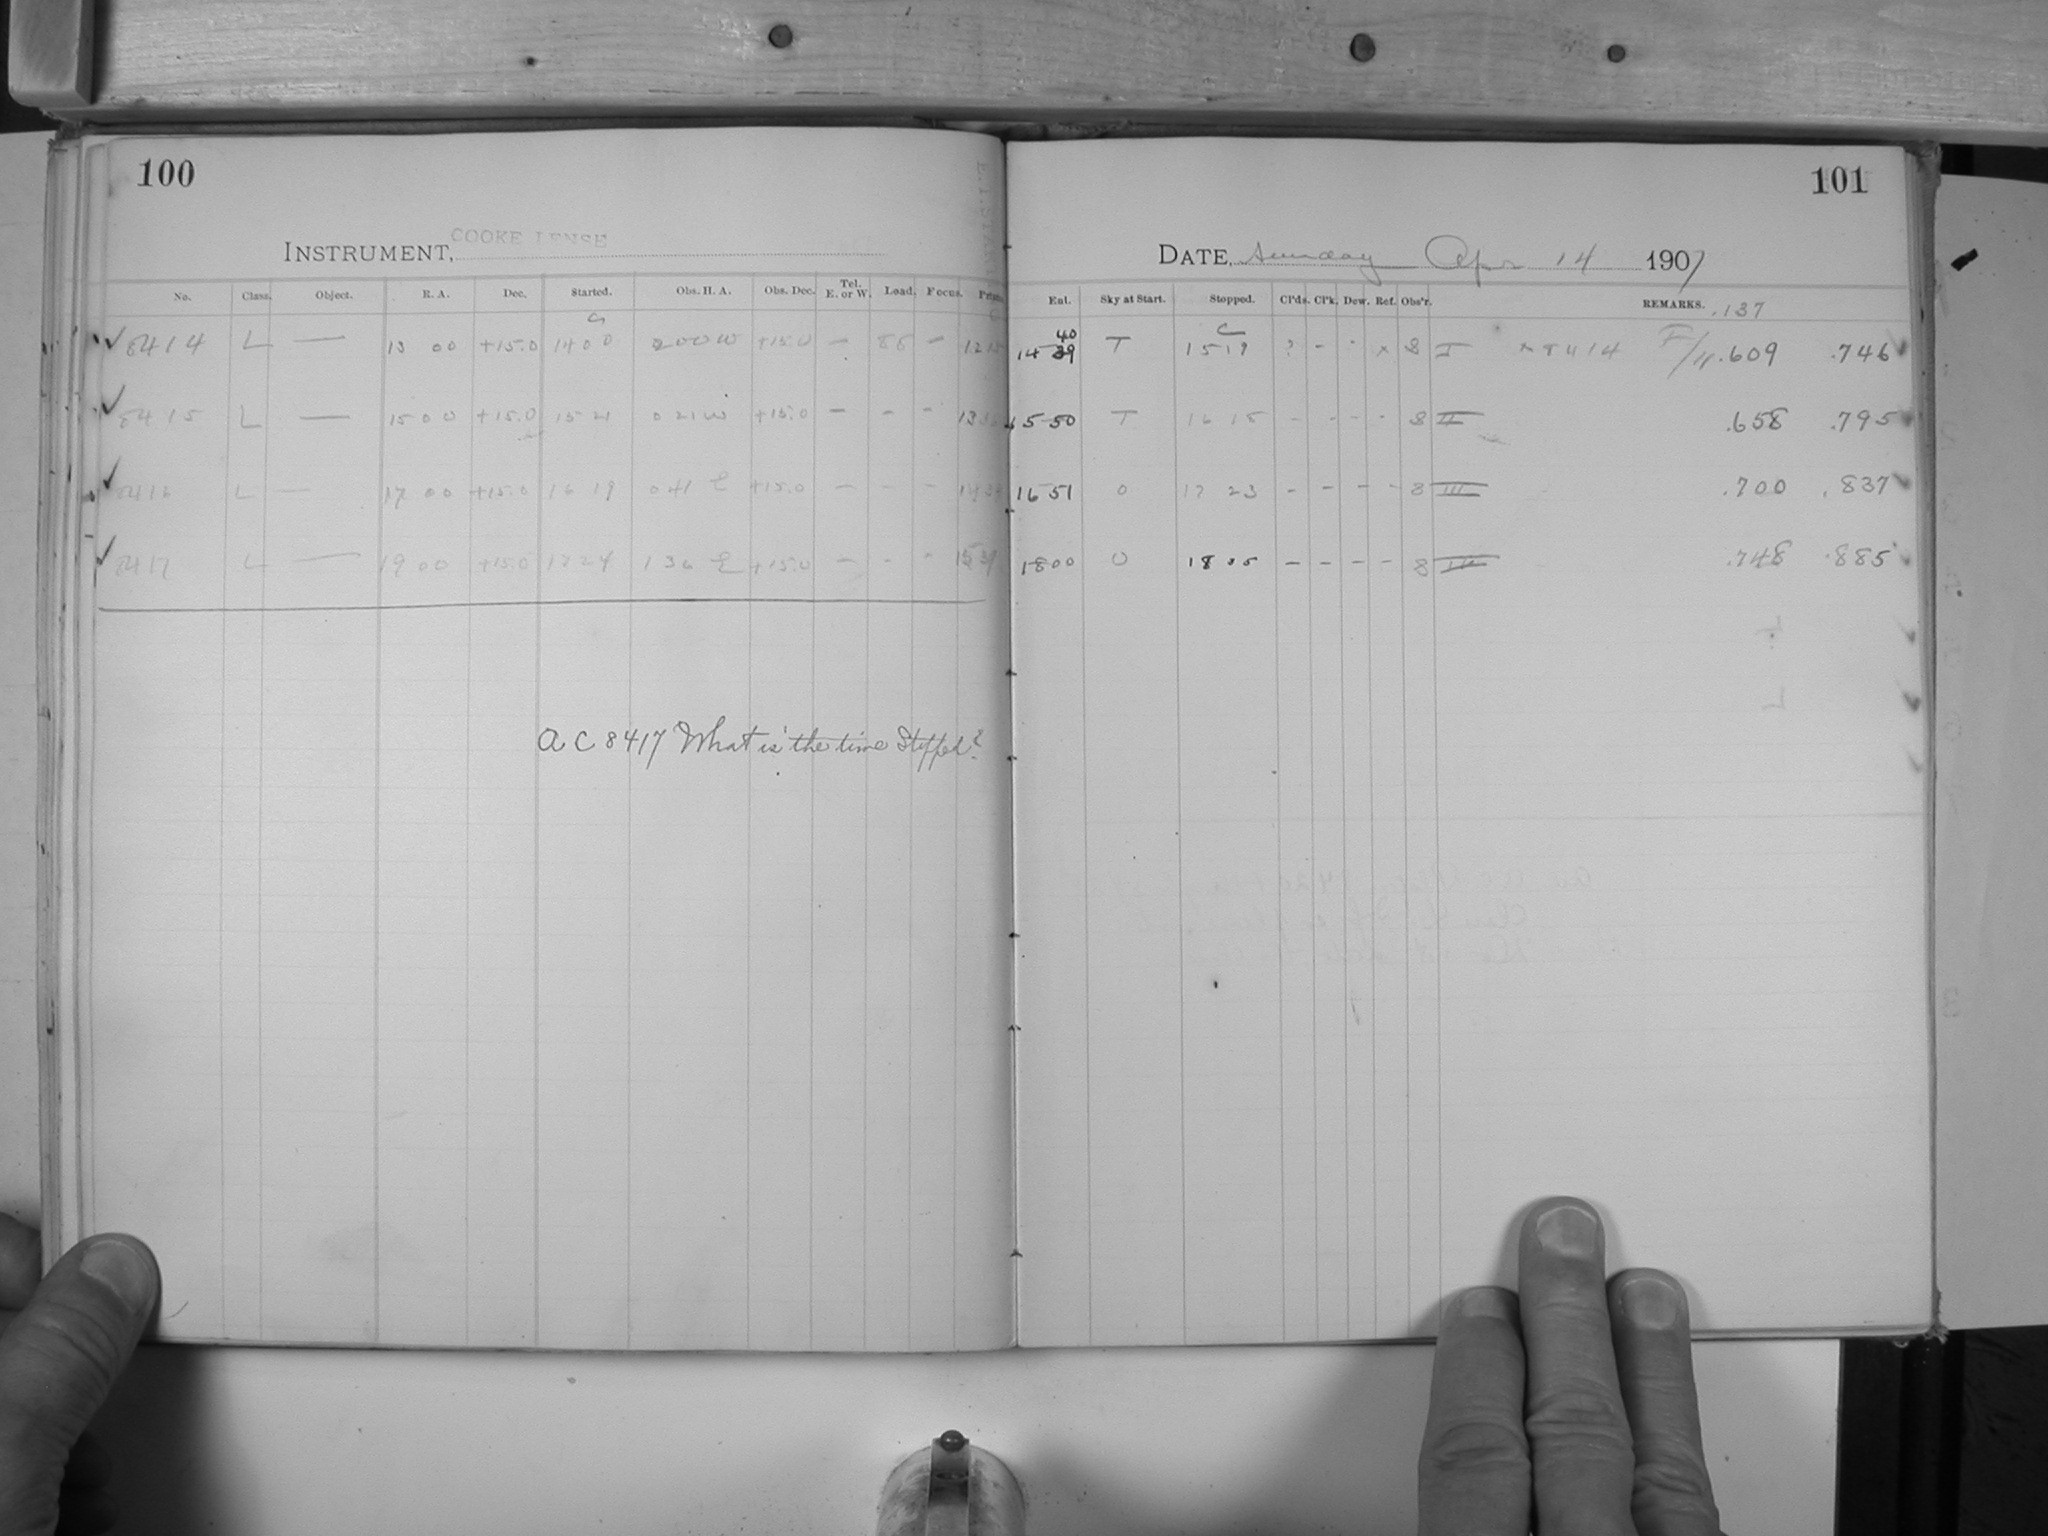 100
INSTRUMENT, COOKE LENSE
No. Class. Object. R. A. Dec. Started. Obs. H. A. Obs. Dec. Tel. E. or W. Load. Focus.
✓ 8414 L — 13 00 +15.0 14 00 2 00 W +15.0 — 88 -
✓ 8415 L — 15 00 +15.0 15 21 0 21 W +15.0 — - -
✓ 8416 L — 17 00 +15.0 16 19 0 41 E +15.0 — - -
✓ 8417 L — 19 00 +15.0 17 24 1 36 E +15.0 — - -
A C 8417 What is the time Stopped?
101
DATE, Sunday Apr 14 1907
Ent. Sky at Start. Stopped. Cl'ds. Cl'k. Dew. Ref. Obs'r. REMARKS. .137
40
14 39 T 15 19 ? - - x 8 I x 8414 .609 .746
15 50 T 16 18 - - - - 8 II .658 .795
16 51 0 17 23 - - - - 8 III .700 .837
18 00 0 - - - - 8 IIII .748 .885